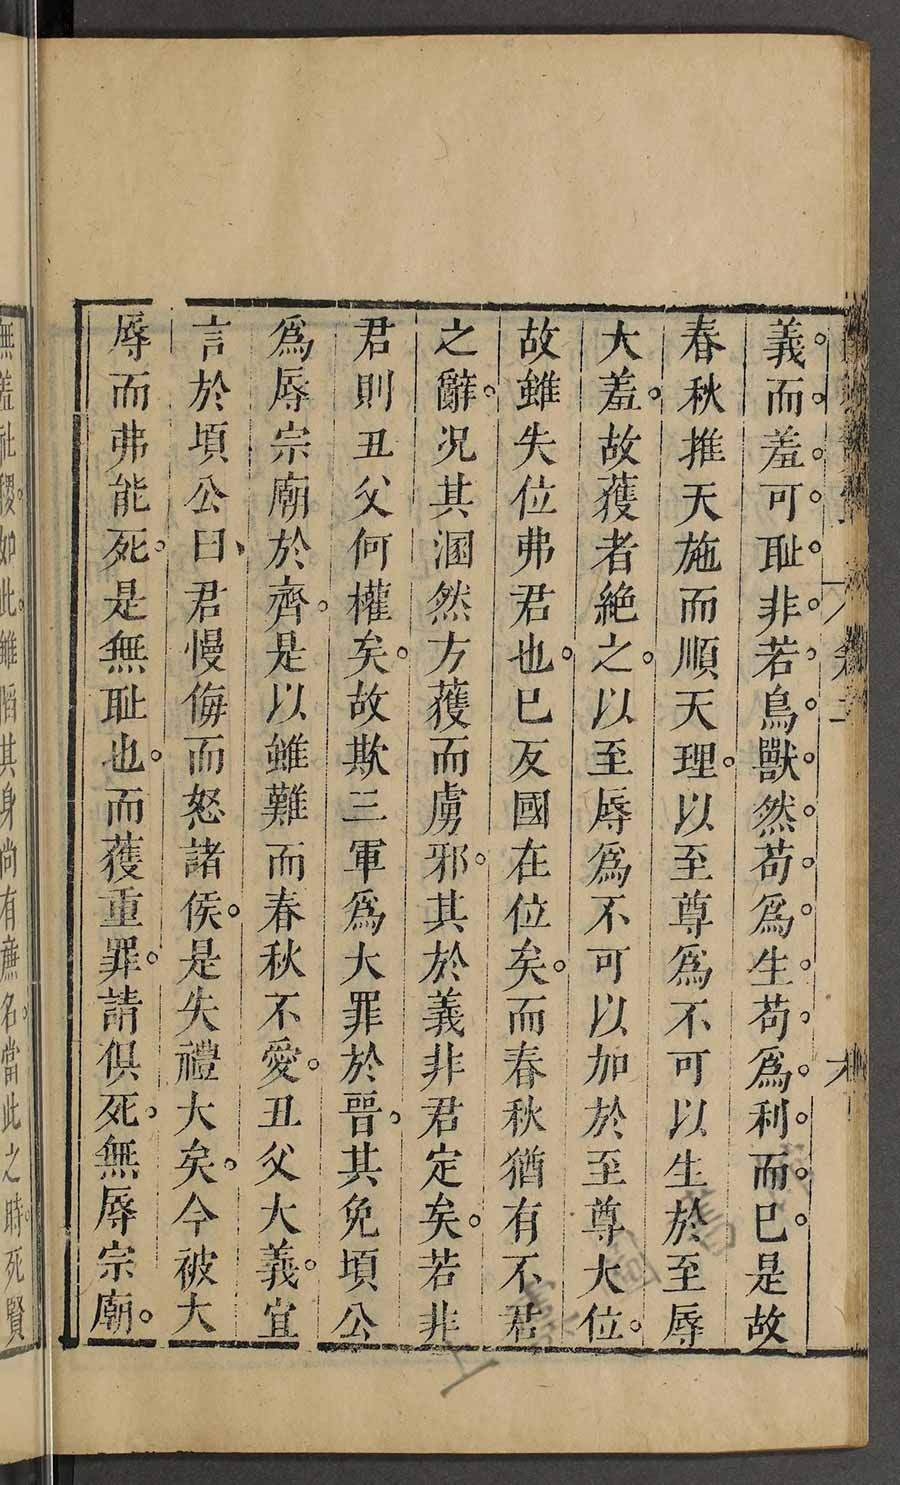 義而羞可耻非若鳥獸然苟爲生苟爲利而已是故
春秋推天施而順天理以至尊爲不可以生於至辱
大羞故獲者絶之以至辱爲不可以加於至尊大位
故雖失位弗君也已反國在位矣而春秋猶有不君
之辭况其溷然方獲而虜邪其於義非君定矣若非
君則丑父何權矣故欺三軍爲大罪於晋其免頃公
爲辱宗廟於齊是以雖難而春秋不愛丑父大義宜
言於頃公曰君慢侮而怒諸侯是失禮大矣今被大
辱而弗能死是無耻也而獲重罪請俱死無辱宗廟
無羞社稷如此雖䧟其身尚有廉名當此之時死賢